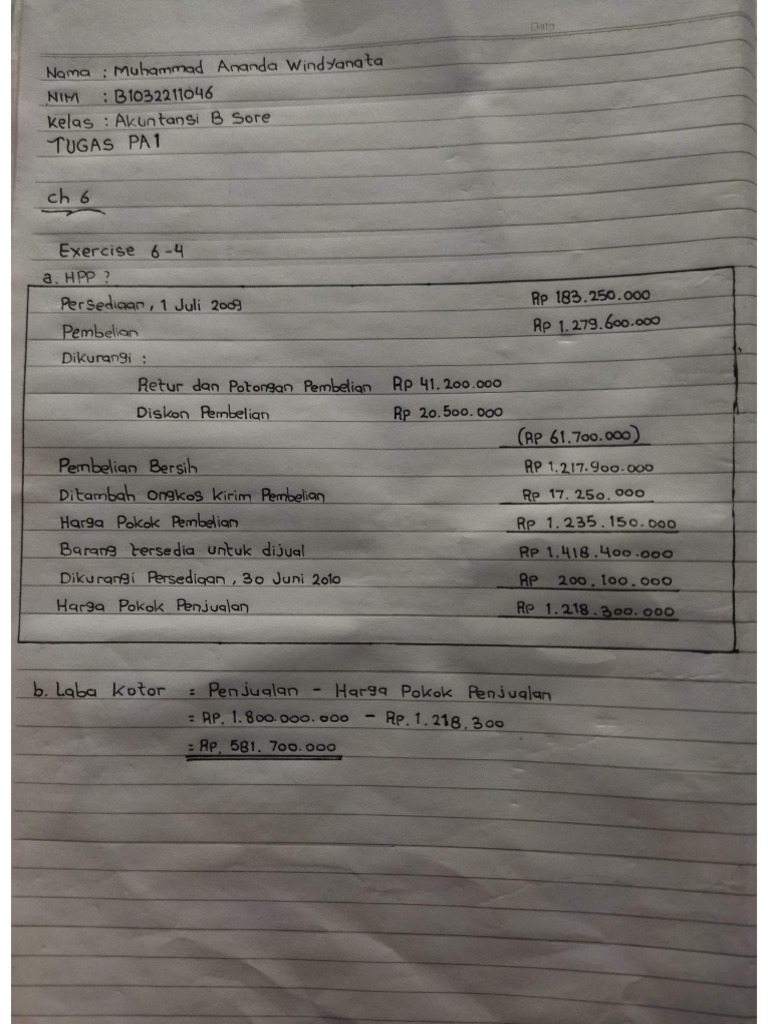 Date
Nama : Muhammad Ananda Windyanata
NIM : B1032211046
Kelas : Akuntansi B Sore
TUGAS PA1
ch 6
Exercise 6-4
a. HPP ?
Persediaan, 1 Juli 2009 Rp 183.250.000
Pembelian Rp 1.279.600.000
Dikurangi :
Retur dan Potongan Pembelian Rp 41.200.000
Diskon Pembelian Rp 20.500.000
(Rp 61.700.000)
Pembelian Bersih Rp 1.217.900.000
Ditambah ongkos kirim Pembelian Rp 17.250.000
Harga Pokok Pembelian Rp 1.235.150.000
Barang tersedia untuk dijual Rp 1.418.400.000
Dikurangi Persediaan, 30 Juni 2010 Rp 200.100.000
Harga Pokok Penjualan Rp 1.218.300.000
b. Laba Kotor = Penjualan - Harga Pokok Penjualan
= Rp. 1.800.000.000 - Rp. 1.218.300
= Rp. 581.700.000